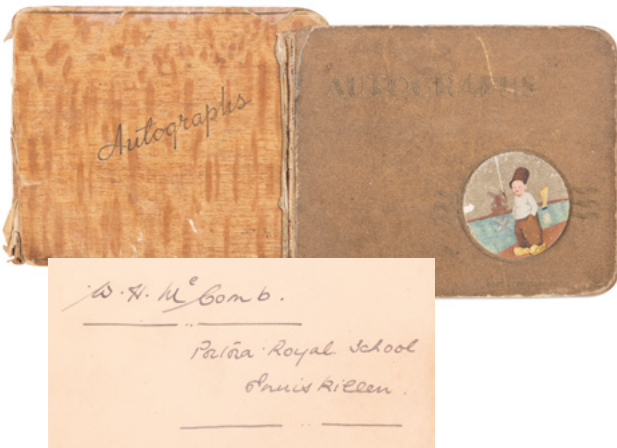 Autographs
AUTOGRAPHS
W. H. McComb.
Portora Royal School
Enniskillen.